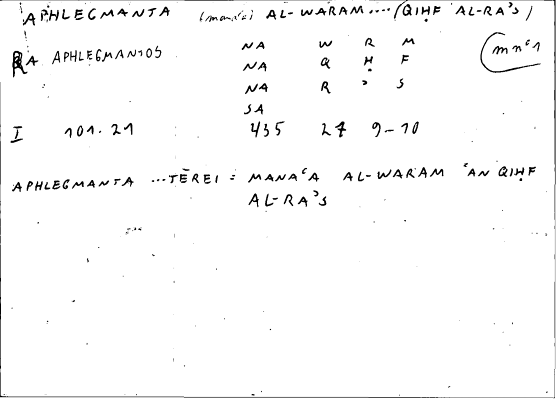 APHLEGMANTA (manaʿa) AL-WARAM .... (QIḤF AL-RAʾS)
RA APHLEGMANTOS NA W R M
NA Q Ḥ F (mnʿ1
NA R ʾ S
SA
I 101.21 435 24 9-10
APHLEGMANTA ...TĒREI = MANAʿA AL-WARAM ʿAN QIḤF
AL-RAʾS